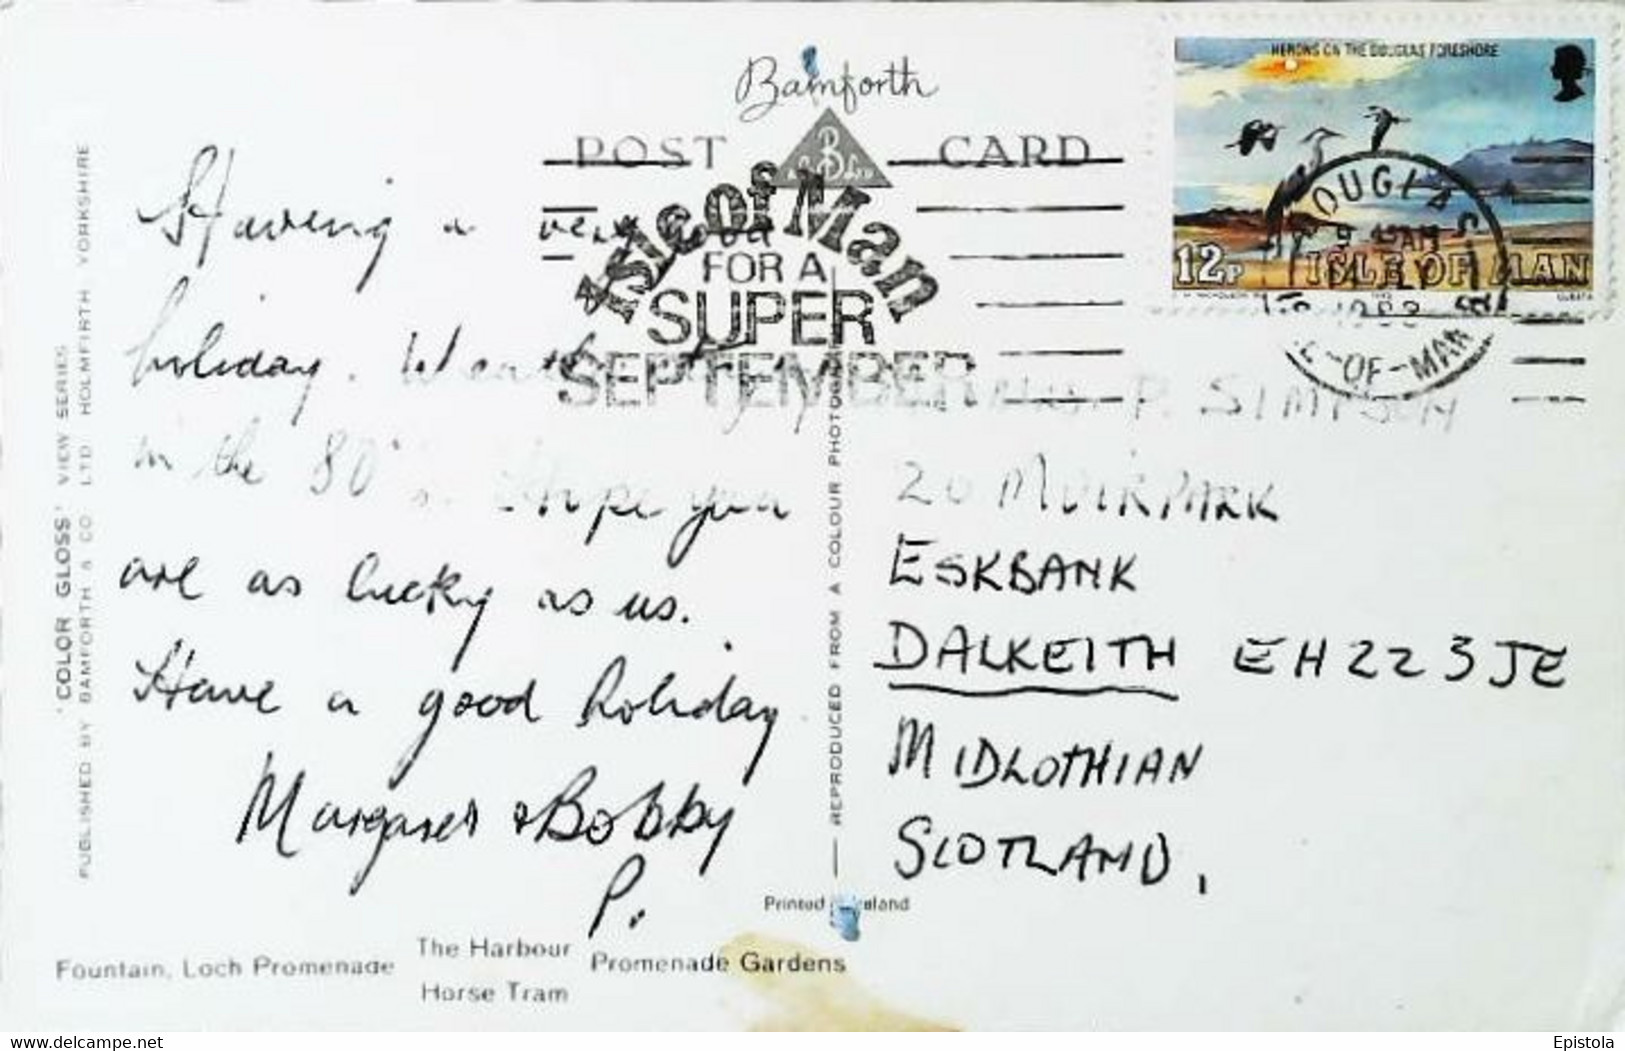 Bamforth
POST CARD
Isle of Man
FOR A
SUPER
SEPTEMBER
HERONS ON THE DOUGLAS FORESHORE
12P ISLE OF MAN
DOUGLAS
ISLE-OF-MAN
Having a very good
holiday. Weather
in the 80's. Hope you
are as lucky as us.
Have a good holiday
Margaret & Bobby
P.
P. SIMPSON
20 MUIRPARK
ESKBANK
DALKEITH EH22 3JE
MIDLOTHIAN
SCOTLAND.
'COLOR GLOSS' VIEW SERIES
PUBLISHED BY BAMFORTH & CO LTD HOLMFIRTH YORKSHIRE
REPRODUCED FROM A COLOUR
Printed
Fountain, Loch Promenade
The Harbour
Horse Tram
Promenade Gardens
Epistola
delcampe.net